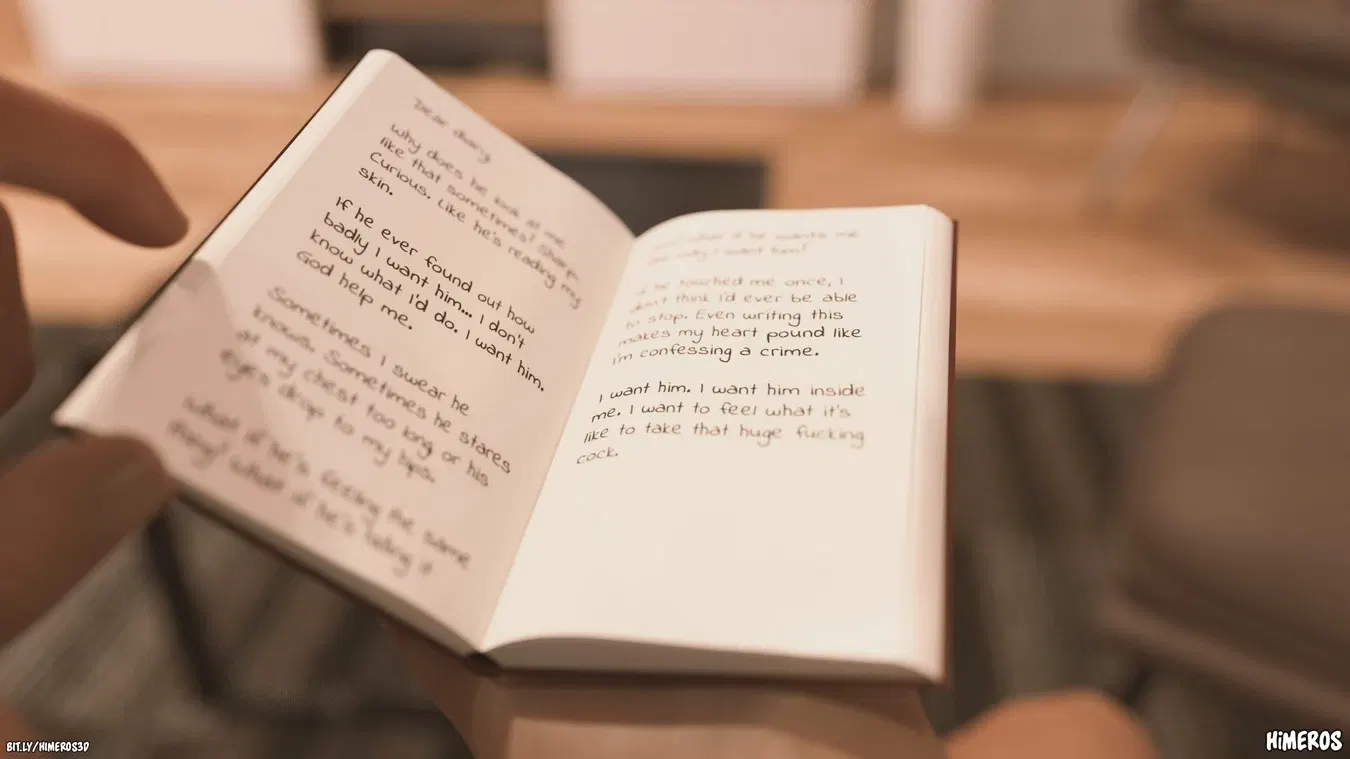 Dear diary
Why does he look at me
like that sometimes? Sharp.
Curious. Like he's reading my
skin.
If he ever found out how
badly I want him... I don't
know what I'd do. I want him.
God help me.
Sometimes I swear he
knows. Sometimes he stares
at my chest too long or his
eyes drop to my lips.
What if he's feeling the same
thing? What if he's hiding it
what if he wants me
want him?
he touched me once, I
don't think I'd ever be able
to stop. Even writing this
makes my heart pound like
I'm confessing a crime.
I want him. I want him inside
me. I want to feel what it's
like to take that huge fucking
cock.
BIT.LY/HIMEROS3D
HiMEROS